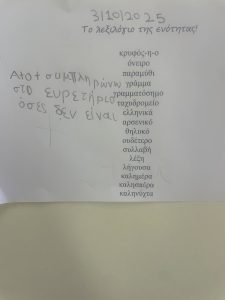 3/10/2025
Το λεξιλόγιο της ενότητας!
κρυφός-η-ο
όνειρο
παραμύθι
γράμμα
γραμματόσημο
ταχυδρομείο
ελληνικά
αρσενικό
θηλυκό
ουδέτερο
συλλαβή
λέξη
λήγουσα
καλημέρα
καλησπέρα
καληνύχτα
συμπληρώνω
στο ευρετήριο
όσες δεν είναι